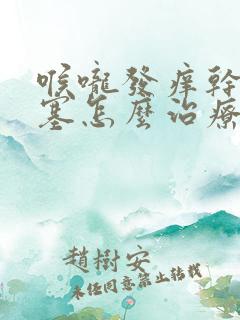 喉嚨發痒幹
塞怎麼治療
趙樹安
未经同意禁止转载